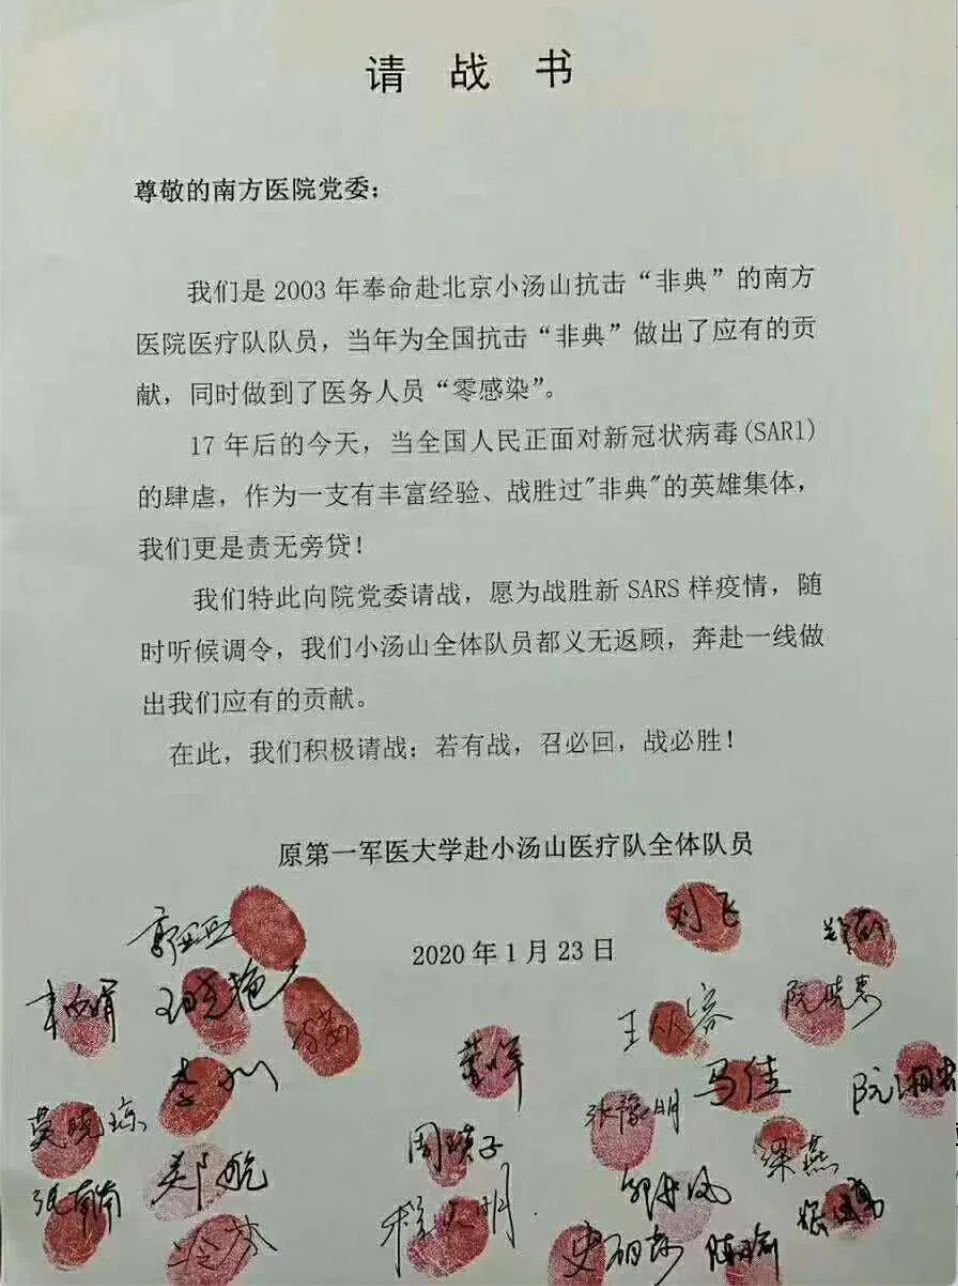 请战书
尊敬的南方医院党委：
我们是2003年奉命赴北京小汤山抗击“非典”的南方
医院医疗队队员，当年为全国抗击“非典”做出了应有的贡
献，同时做到了医务人员“零感染”。
17年后的今天，当全国人民正面对新冠状病毒(SARI)
的肆虐，作为一支有丰富经验、战胜过"非典"的英雄集体，
我们更是责无旁贷！
我们特此向院党委请战，愿为战胜新SARS样疫情，随
时听候调令，我们小汤山全体队员都义无返顾，奔赴一线做
出我们应有的贡献。
在此，我们积极请战：若有战，召必回，战必胜！
原第一军医大学赴小汤山医疗队全体队员
刘飞
郭亚
2020年1月23日
王晓艳
阮晓惠
王从容
董军
李川
马佳
阮湘
张豫明
莫晓琼
周瑛子
梁燕
郑航
张南南
冷芬